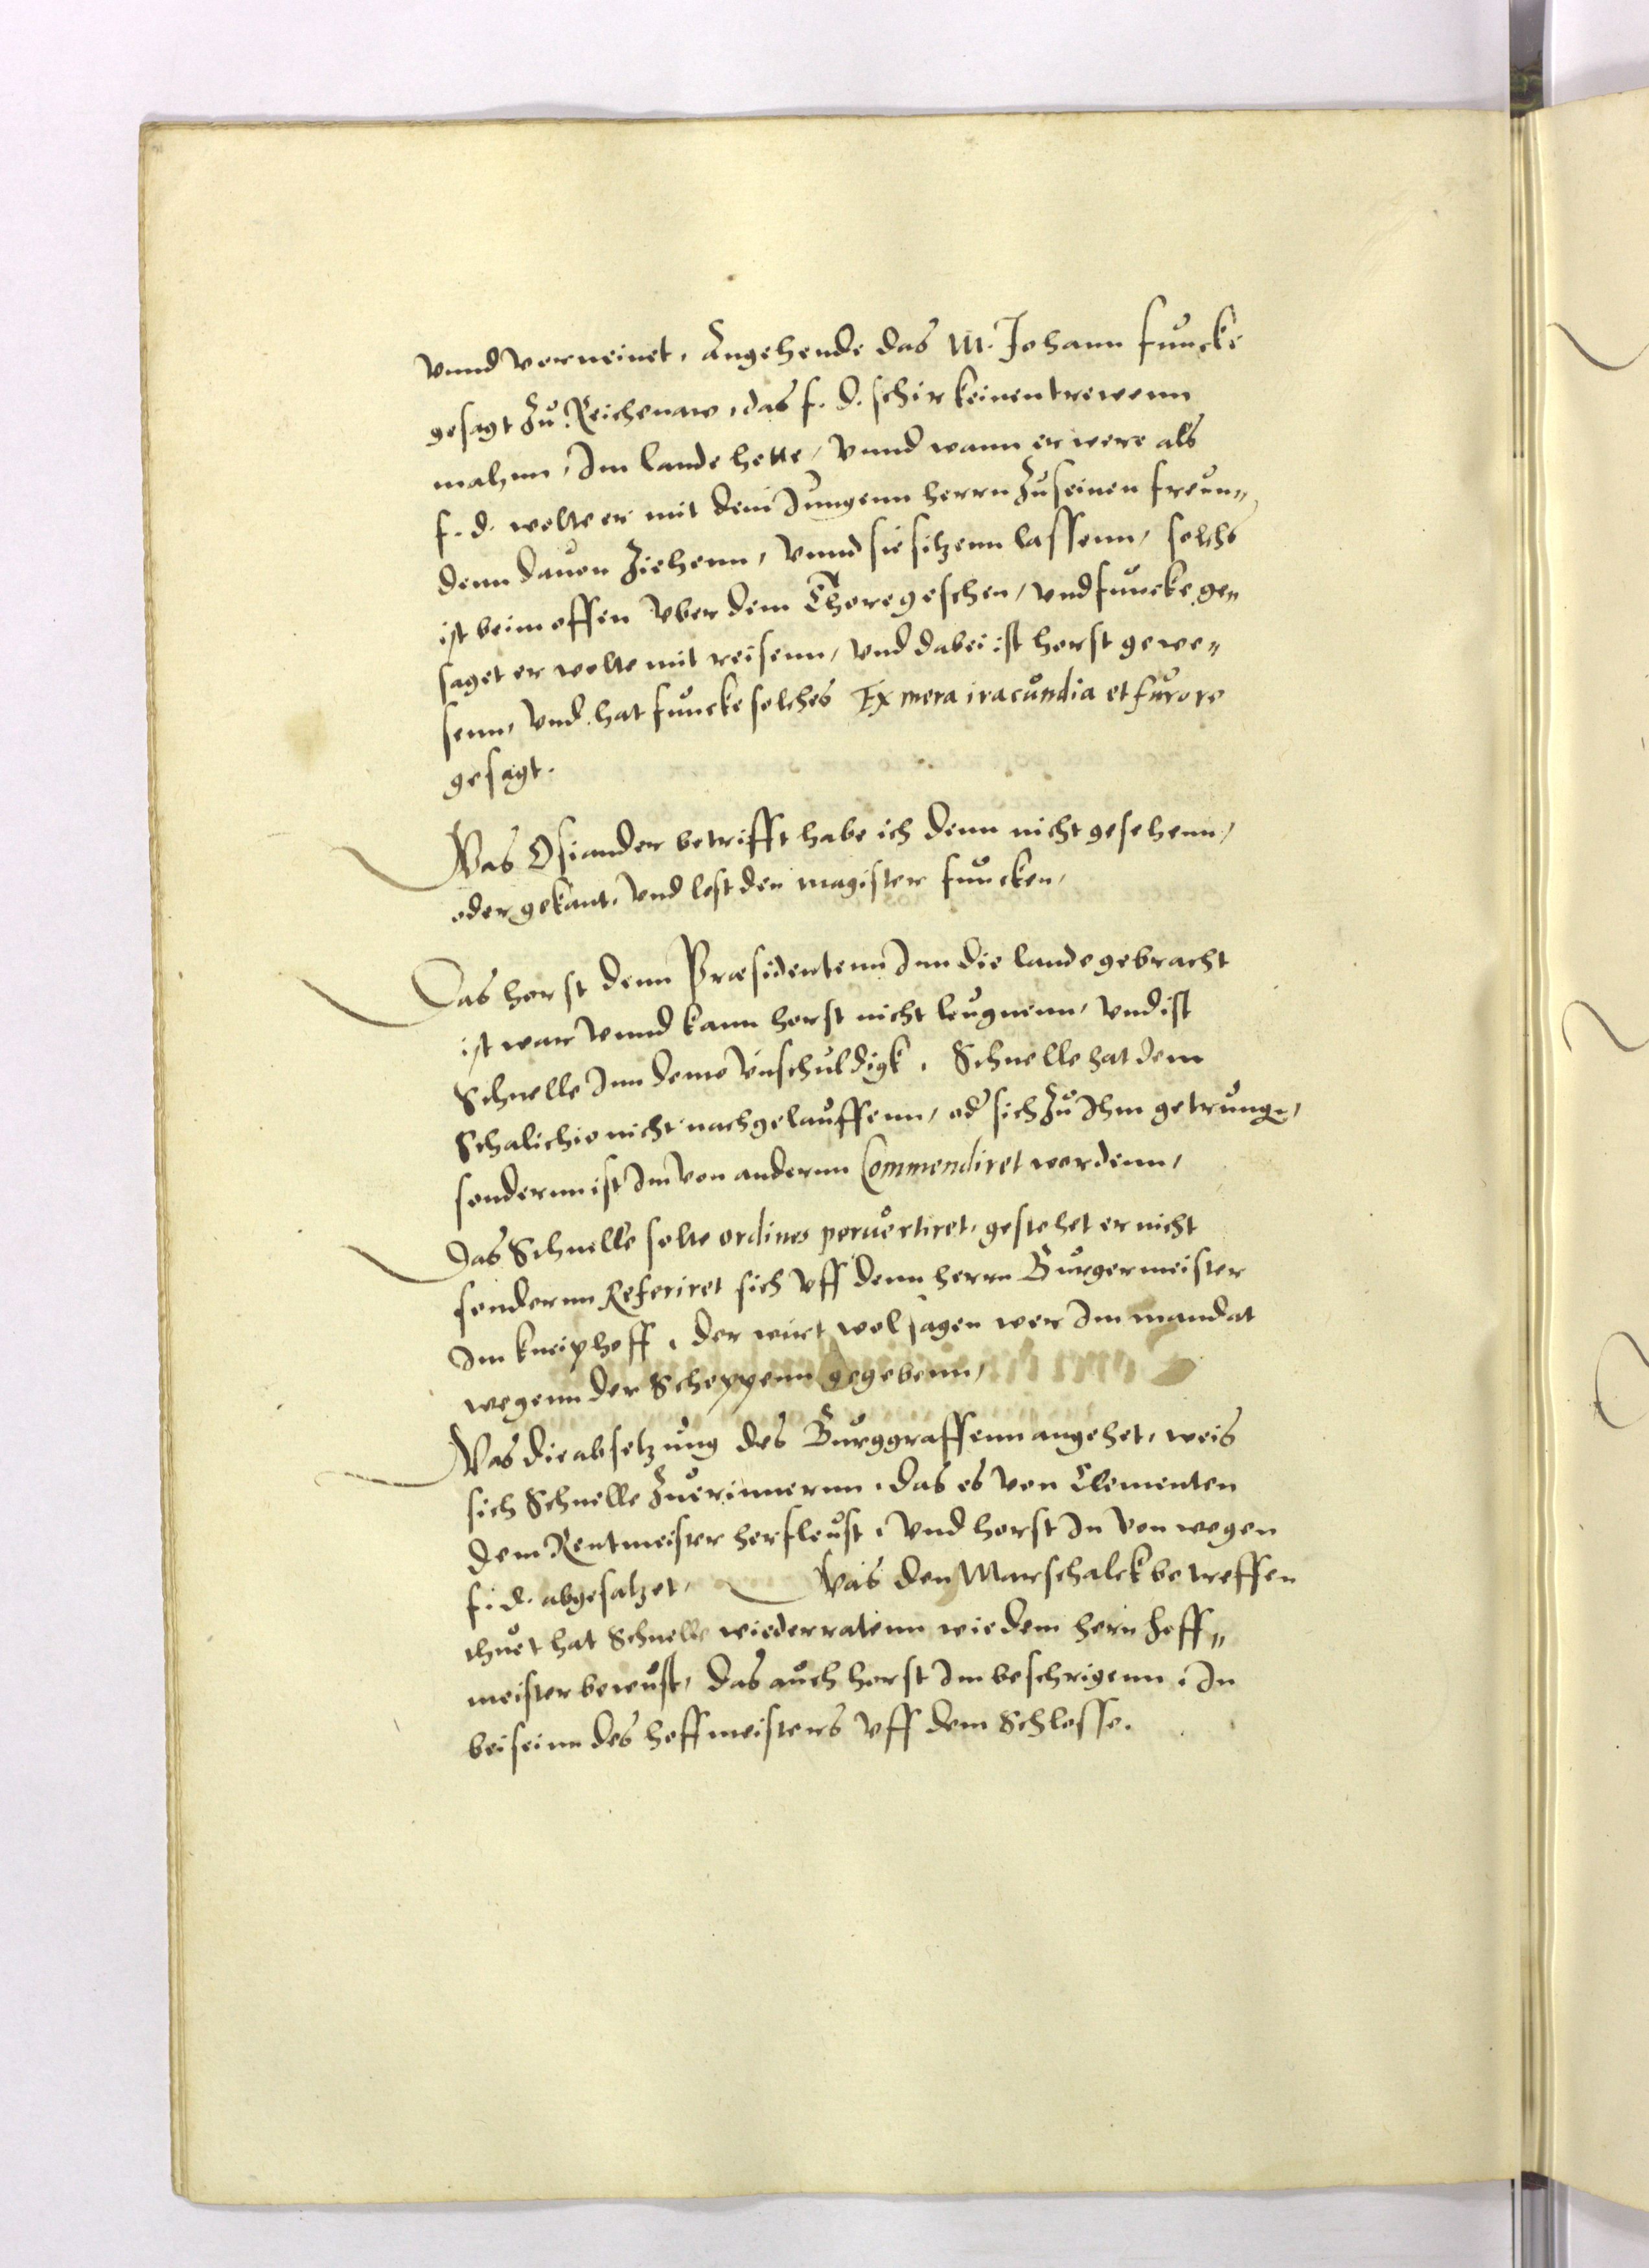 vnnd verneinet, Angehende das M. Johann Funcke
gesagt zu Reichenaw, das f. d. schir keinen trewenn
mahnn, Im lande hette, vnnd wann er were als
f. d. wolte er mit dem Jungenn herrn zu seinen freun„
denn dauon ziehenn, vnnd sie sitzenn lassenn, solchs
ist beim offen vber dem Thore geschen, vnd funcke ge„
saget er wolte mit reisenn, vnd dabei ist horst gewe„
senn, vnd hat funcke solches Ex mera iracundia et furore
gesagt.
Was Osiander betrifft habe ich denn nicht gesehenn,
oder gekant, vnd lest den magister funcken,
Das horst denn Præsidentenn Inn die lande gebracht
ist war vnnd kann horst nicht leugnenn, vnd ist
Schnelle Inn deme vnschuldigk, Schnelle hat dem
Schalichio nicht nachgelauffenn, od' sich zu Ihm getrunge,
sondernn ist Im von andernn Commendiret wordenn,
Das Schnelle solte ordines peruertiret, gestehet er nicht
sondernn Referiret sich vff denn herrn Burgermeister
Im kneiphoff, der wirt wol sagen wer Im mandat
wegenn der Scheppenn gegebenn,
Was die absetzung des Burggraffenn angehet, weis
sich Schnelle zuerinnernn, das es von Clementen
dem Rentmeister herfleust, vnd horst In von wegen
f. d. abgesatzet, Was den Marschalck betreffen
thuet hat Schnelle wiederratenn wie dem hern hoff„
meister bewust, das auch horst Im beschrigenn, In
beiseinn des hoffmeisters vff dem Schlosse.